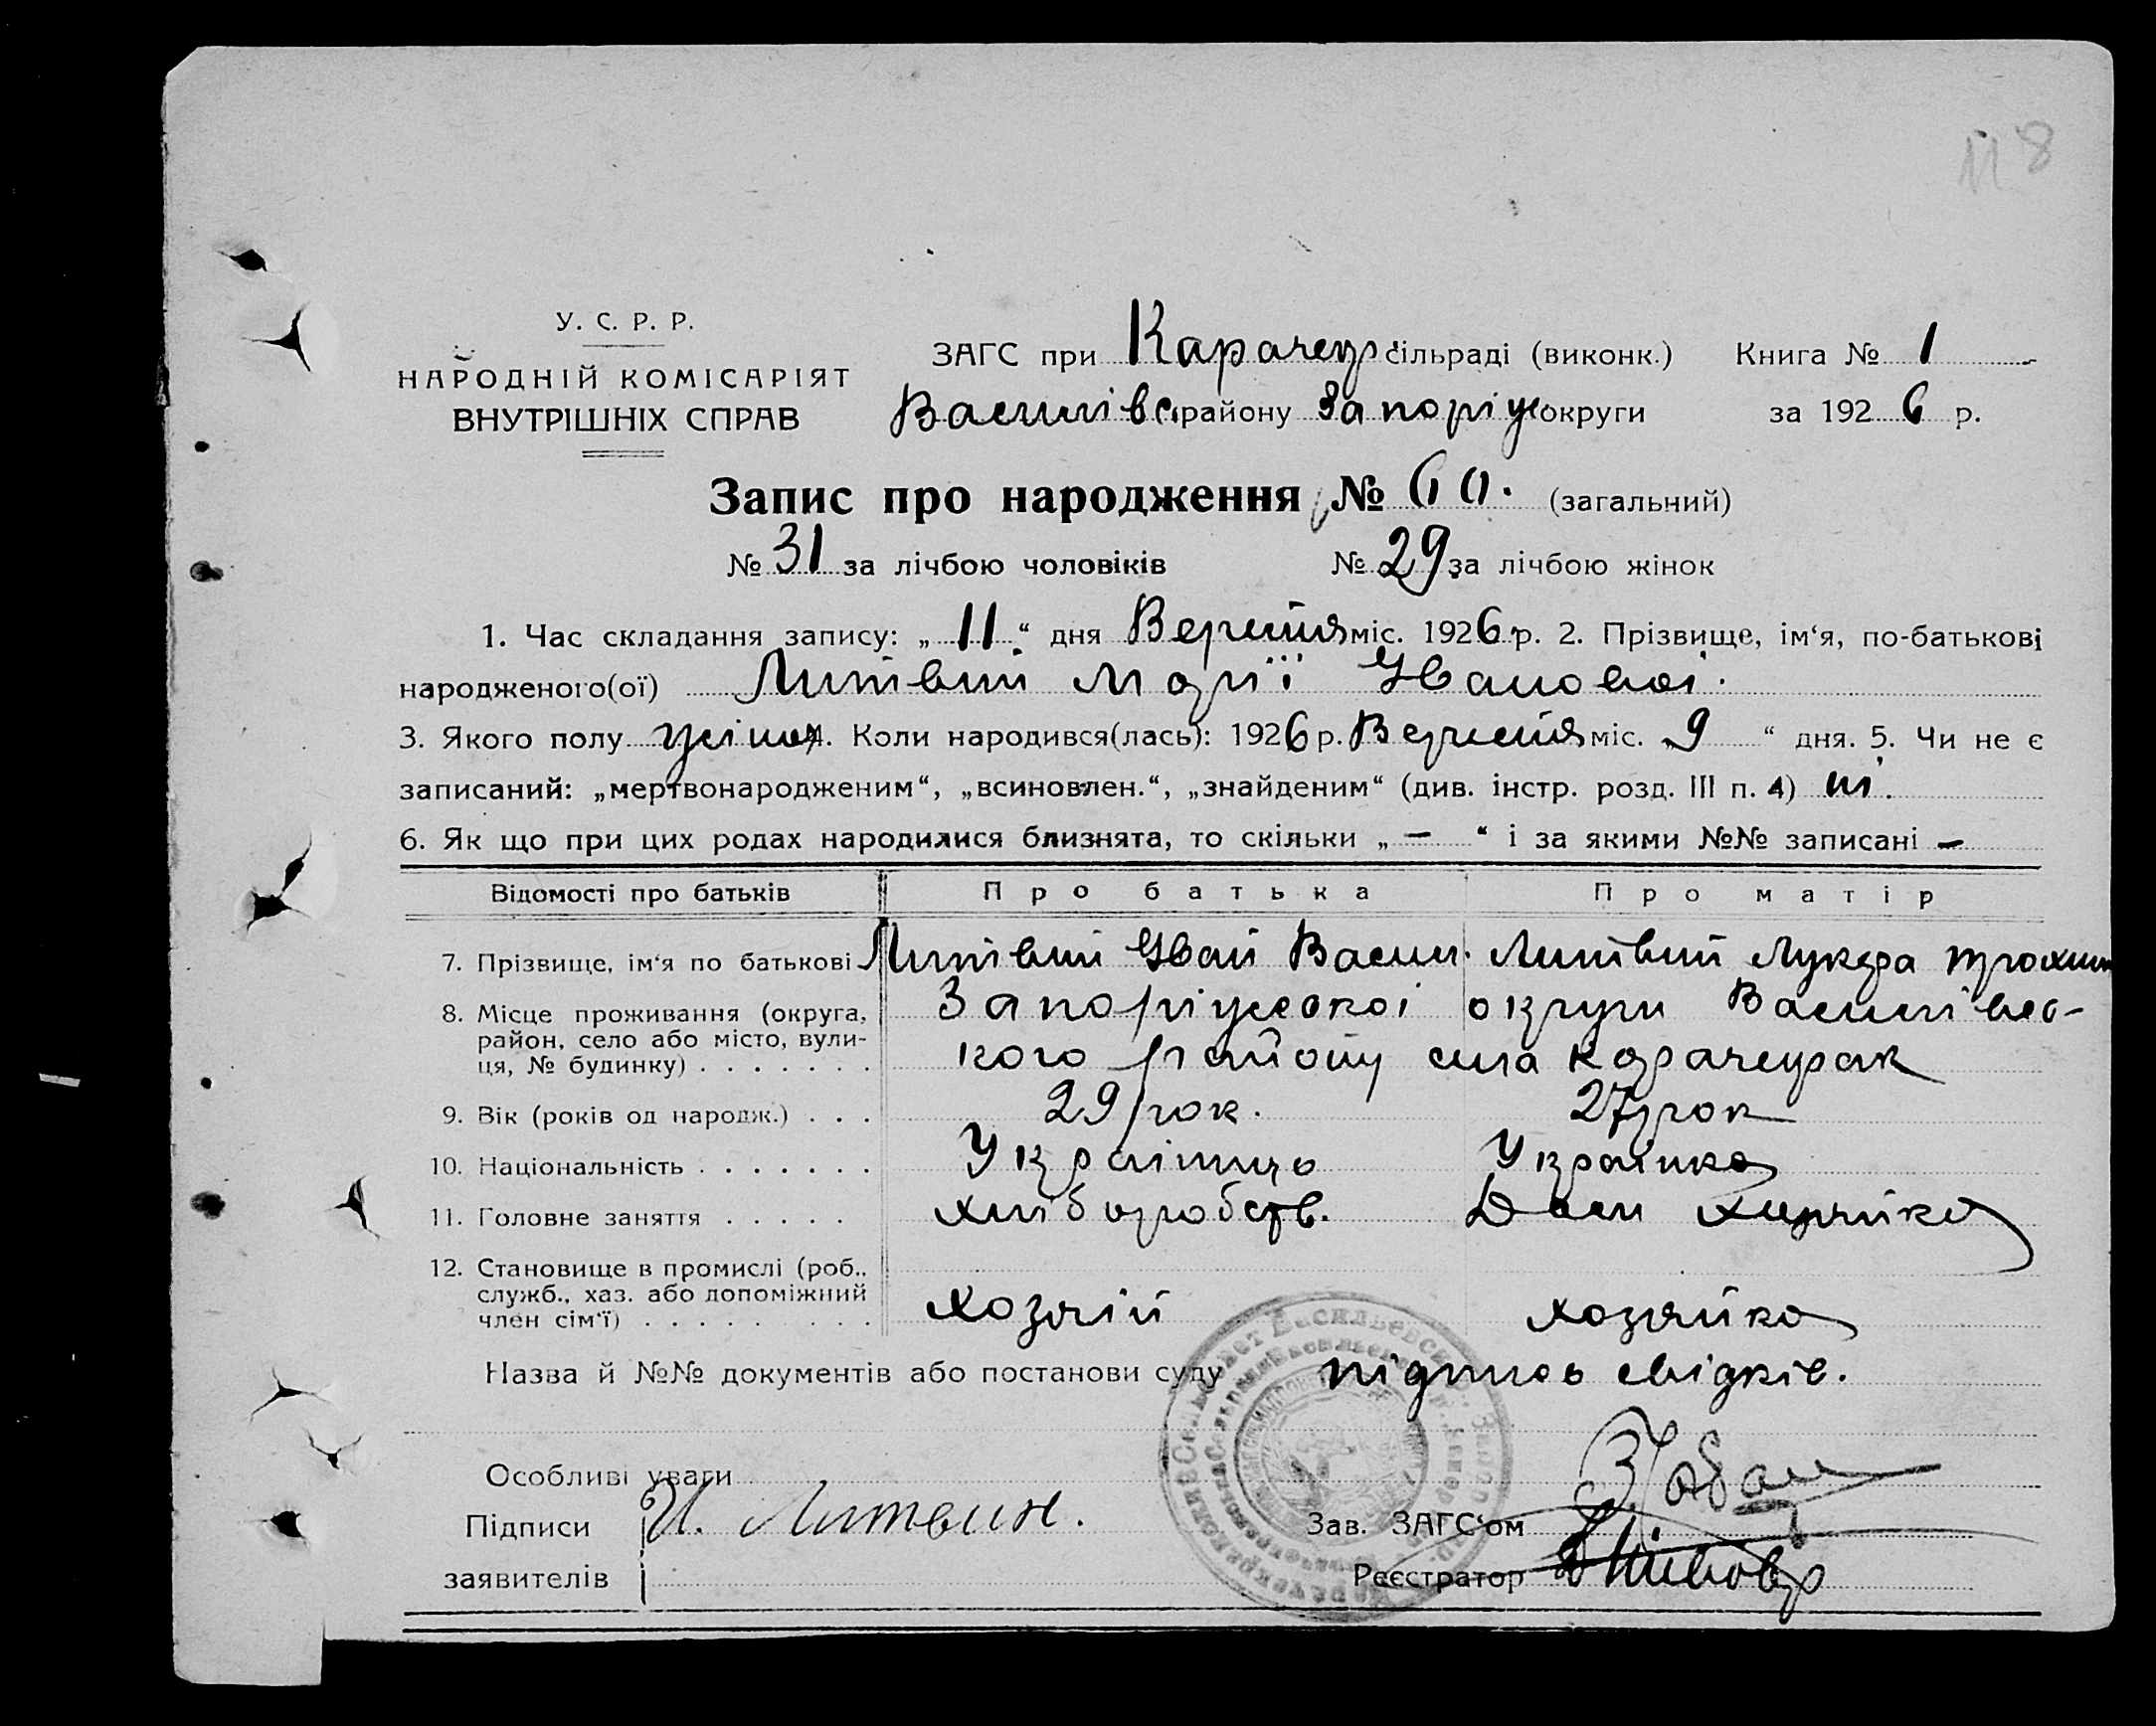 118
У. С. Р. Р.
НАРОДНІЙ КОМІСАРІЯТ
ВНУТРІШНІХ СПРАВ
ЗАГС при Карачекр сільраді (виконк.) Книга № 1
Василівс району Запоріж округи за 1926 р.
Запис про народження № 60. (загальний)
№ 31 за лічбою чоловіків № 29 за лічбою жінок
1. Час складання запису: „ 11 “ дня Вересня міс. 1926 р. 2. Прізвище, ім‘я, по-батькові
народженого(ої) Литвин Марії Ивановоі.
3. Якого полу жіноч 4. Коли народився(лась): 1926 р. Вересня міс. „ 9 “ дня. 5. Чи не є
записаний: „мертвонародженим“, „всиновлен.“, „знайденим“ (див. інстр. розд. III п. 4) ні.
6. Як що при цих родах народилися близнята, то скільки „ — “ і за якими №№ записані —
Відомості про батьків Про батька Про матір
7. Прізвище, ім‘я по батькові Литвин Иван Васил. Литвин Лукера Трохим
8. Місце проживання (округа, район, село або місто, вули-ця, № будинку) Запоріжськоі округи Василівсь-
кого району села Карачекрак
9. Вік (років од народж.) 29 рок. 27 рок
10. Національність Украінець Украінка
11. Головне заняття хліборобств. Дом хазяйка
12. Становище в промислі (роб., служб., хаз. або допоміжний член сім‘ї) хозяін хозяйка
Назва й №№ документів або постанови суду підпись свідків.
Особливі уваги
Підписи И. Литвин. Зав. ЗАГС‘ом
заявителів Реєстратор